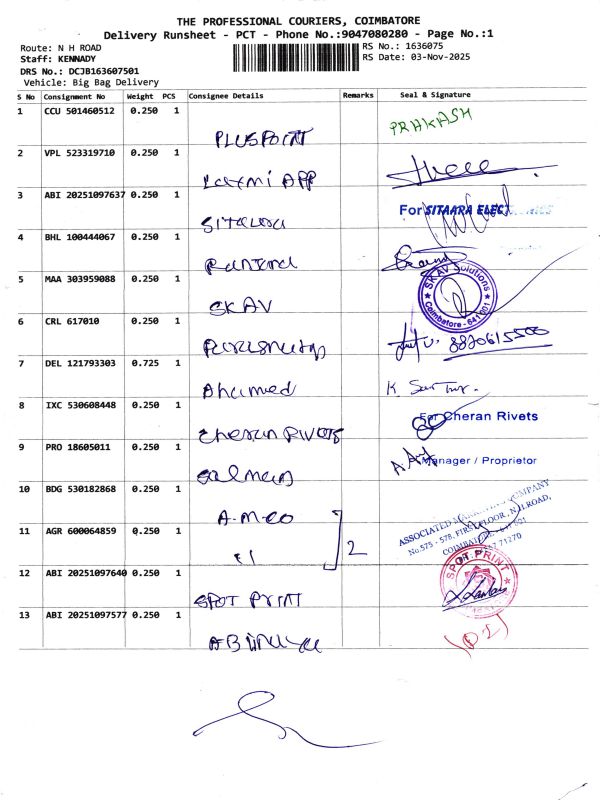 THE PROFESSIONAL COURIERS, COIMBATORE
Delivery Runsheet - PCT - Phone No.:9047080280 - Page No.:1
Route: N H ROAD
RS No.: 1636075
Staff: KENNADY
RS Date: 03-Nov-2025
DRS No.: DCJB163607501
Vehicle: Big Bag Delivery
S No Consignment No Weight PCS Consignee Details Remarks Seal & Signature
1 CCU 501460512 0.250 1
PRAKASH
PLUSPOINT
2 VPL 523319710 0.250 1
Laxmi APP
3 ABI 20251097637 0.250 1
For SITAARA ELECT
Sitaara
4 BHL 100444067 0.250 1
5 MAA 303959088 0.250 1
SK AV Solutions
Coimbatore - 641 001
SKAV
6 CRL 617010 0.250 1
8870615500
7 DEL 121793303 0.725 1
Ahamed
8 IXC 530608448 0.250 1
For Cheran Rivets
Cheran Rivets
9 PRO 18605011 0.250 1
Manager / Proprietor
Salman
10 BDG 530182868 0.250 1
A-M-CO
ASSOCIATED COMPANY
No.575 - 578, FIRST FLOOR, N.H.ROAD,
11 AGR 600064859 0.250 1
11
2
12 ABI 20251097640 0.250 1
SPOT PRINT
SPOT PRINT
13 ABI 20251097577 0.250 1